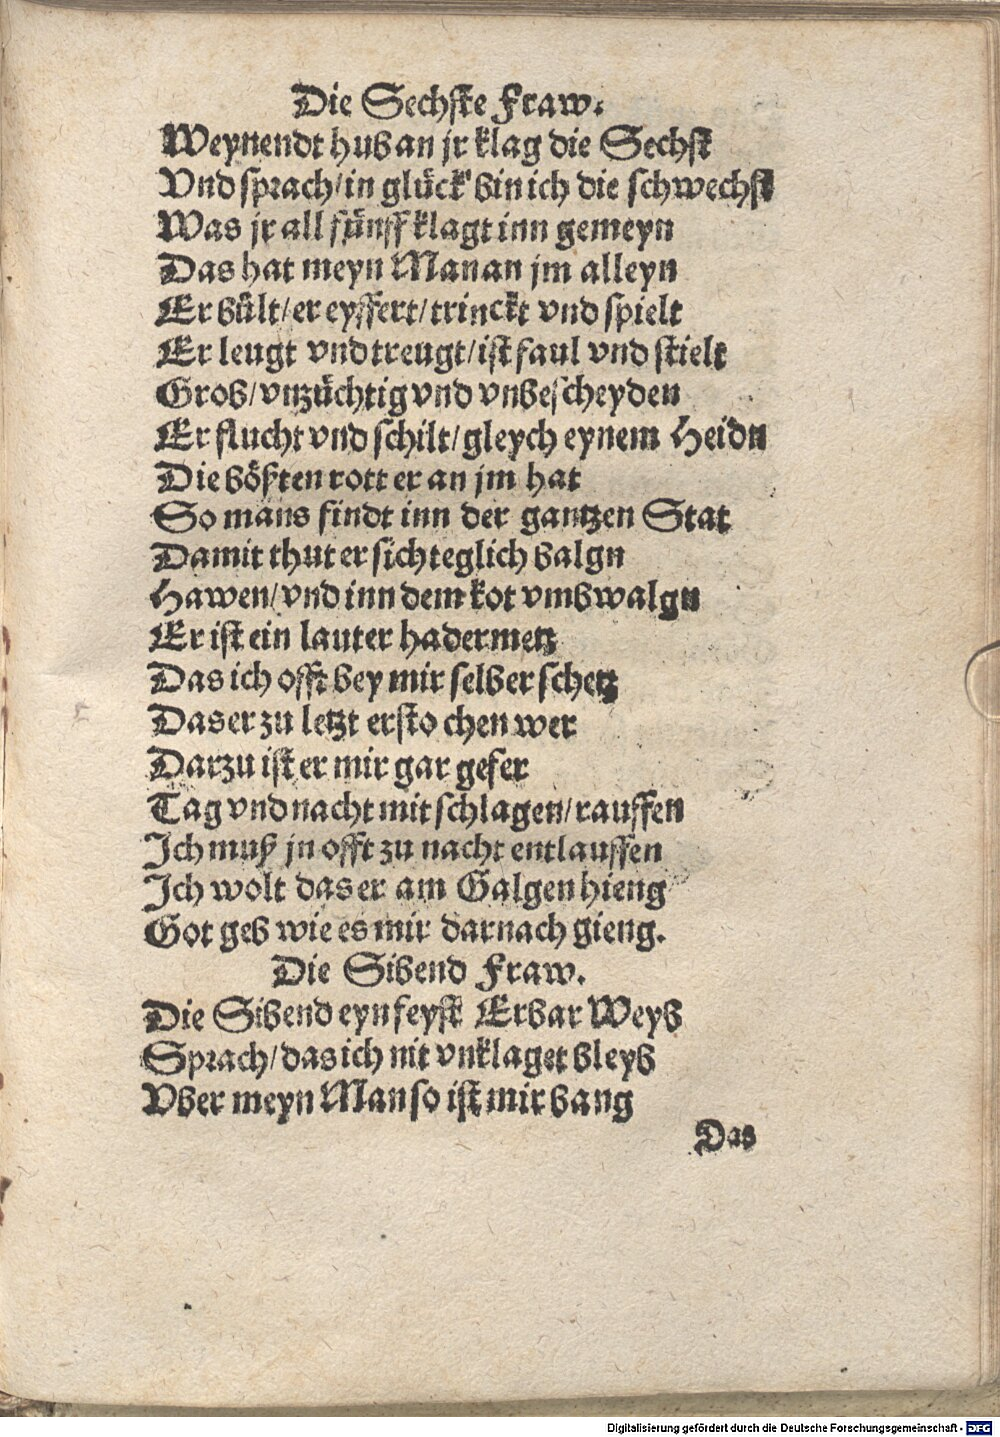 Die Sechste Fraw.
Weynendt hub an jr klag die Sechst
Vnd sprach/in glück bin ich die schwechst
Was jr all fünff klagt inn gemeyn
Das hat meyn Man an jm alleyn
Er bült/er eyffert/trinckt vnd spielt
Er leugt vnd treugt/ist faul vnd stielt
Grob/vnzüchtig vnd vnbescheyden
Er flucht vnd schilt/gleych eynem Heidn
Die bößten rott er an jm hat
So mans findt inn der gantzen Stat
Damit thut er sich teglich balgn
Hawen/vnd inn dem kot vmbwalgn
Er ist ein lauter hadermetz
Das ich offt bey mir selber schetz
Das er zu letzt erstochen wer
Darzu ist er mir gar gefer
Tag vnd nacht mit schlagen/rauffen
Ich muß jn offt zu nacht entlauffen
Ich wolt das er am Galgen hieng
Got geb wie es mir darnach gieng.
Die Sibend Fraw.
Die Sibend eyn feyst Erbar Weyb
Sprach/das ich nit vnklaget bleyb
Vber meyn Man so ist mir bang
Das
Digitalisierung gefördert durch die Deutsche Forschungsgemeinschaft - DFG